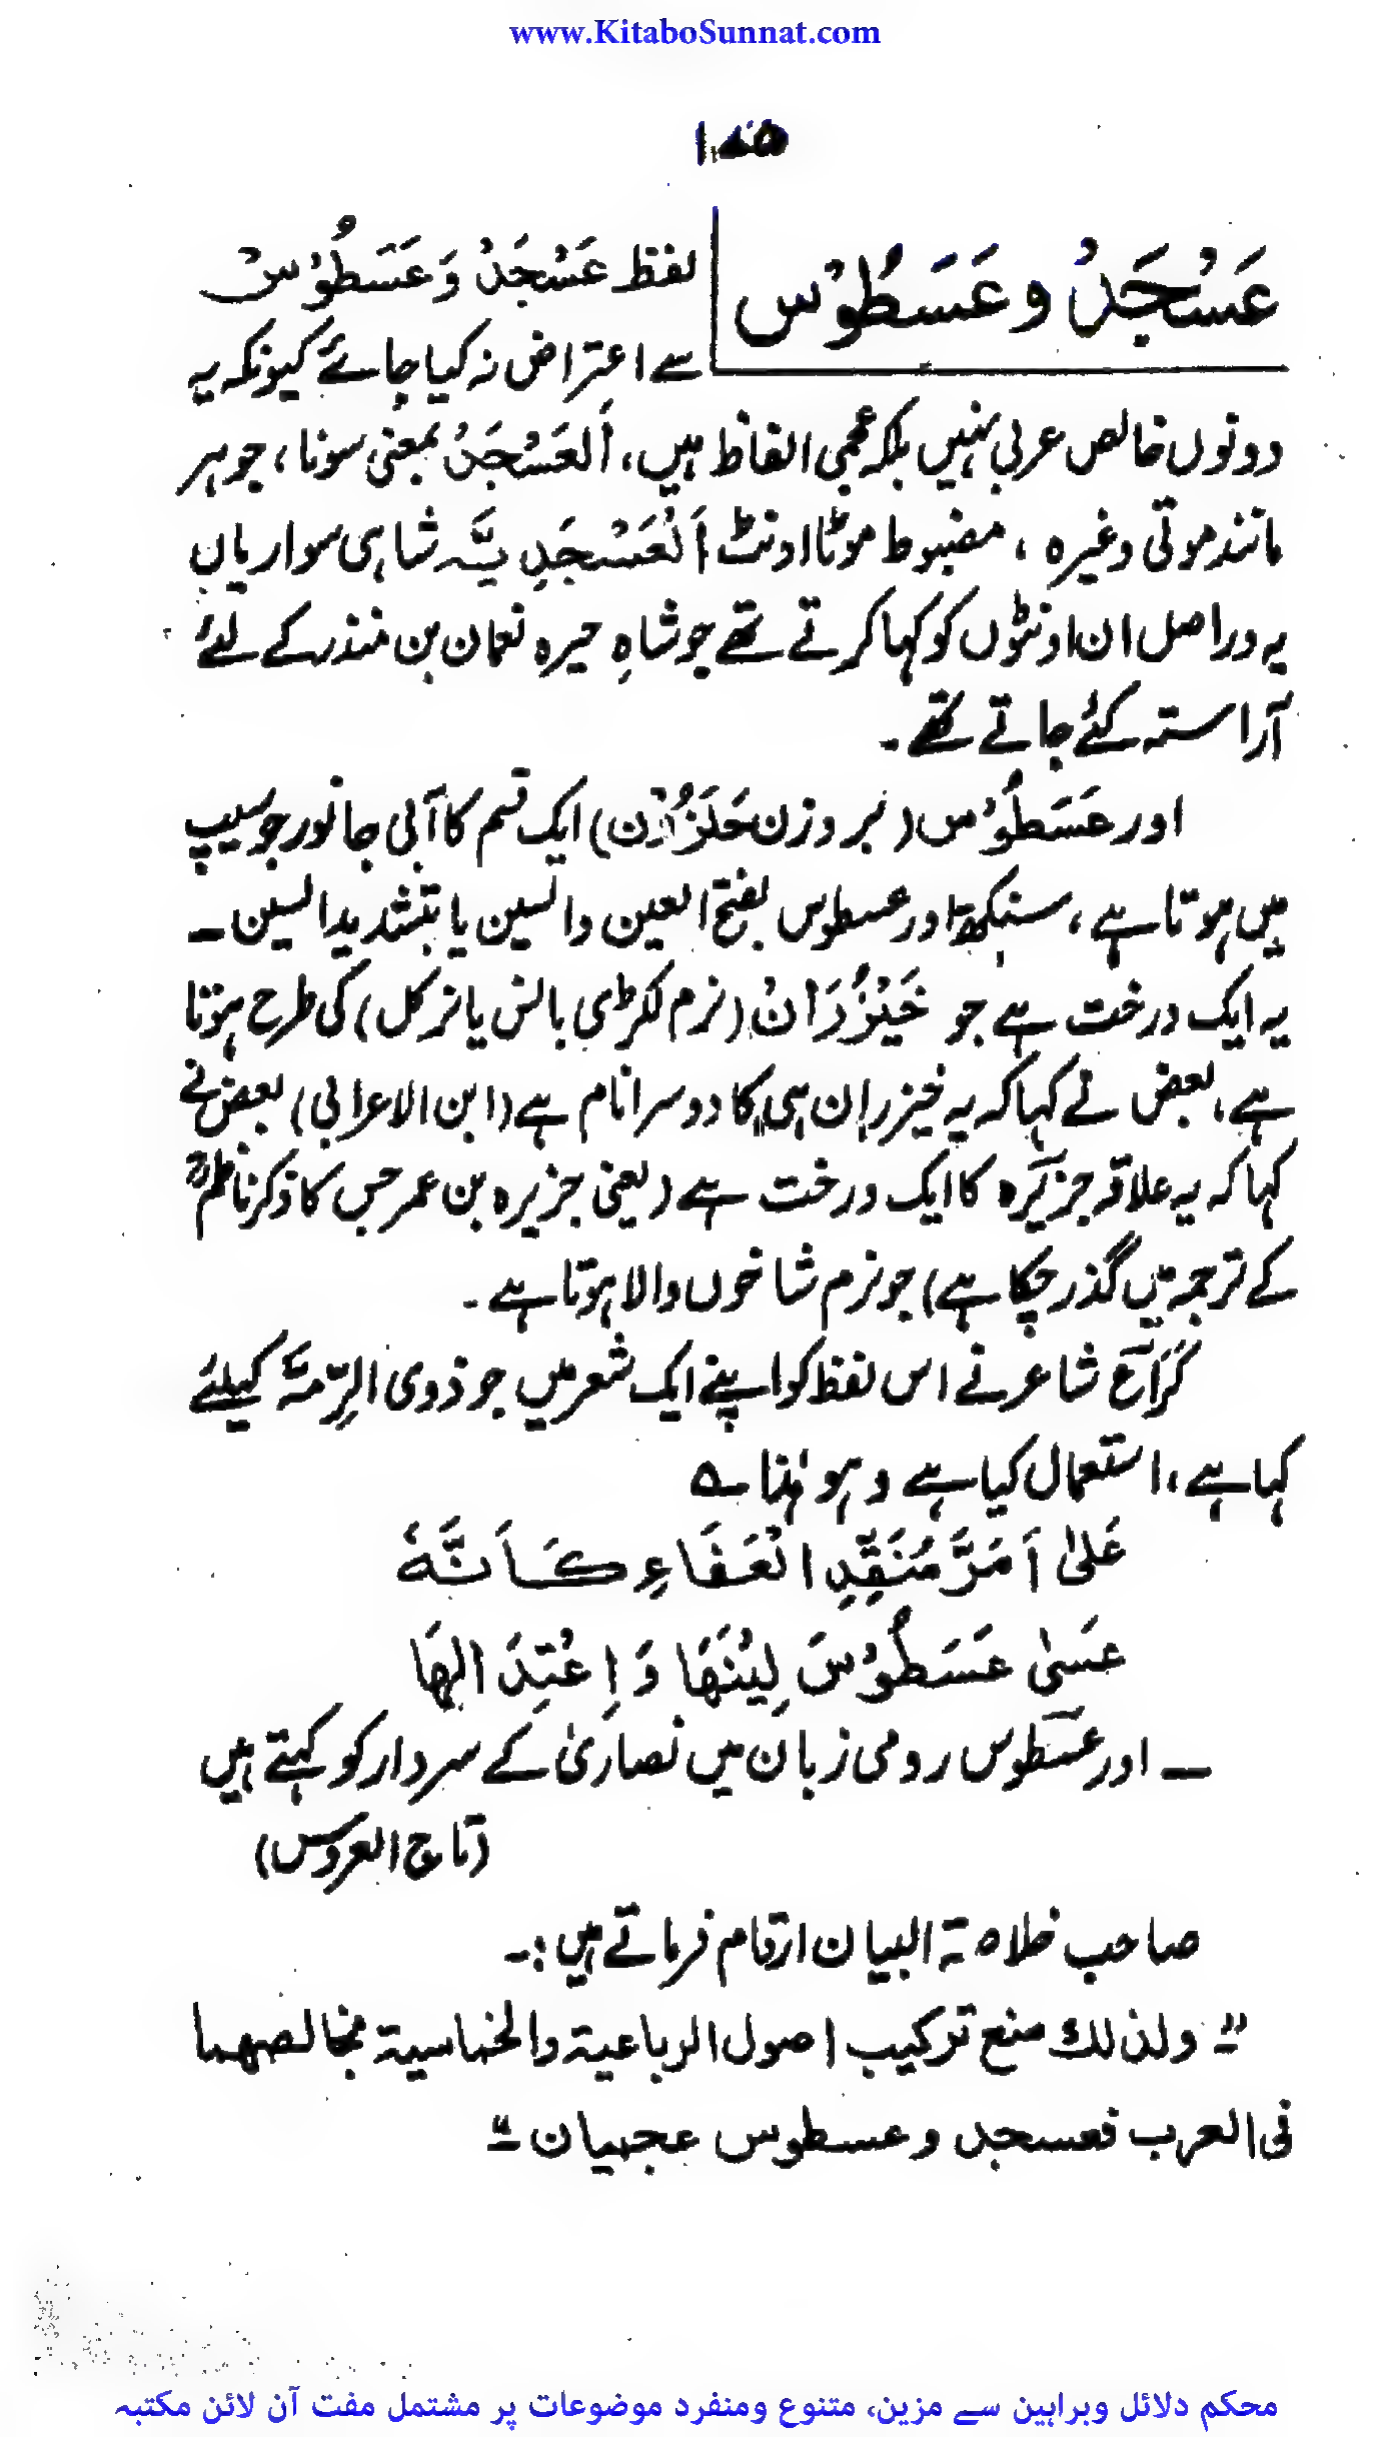 www.KitaboSunnat.com
عَسْجَدُ وعَسَطُوْس
لفظ عَسْجَدُ وَعَسَطُوْسْ
سے اعتراض نہ کیا جائے کیونکہ یہ
دونوں خالص عربی نہیں بلکہ عجمی الفاظ ہیں، اَلعَسْجَدُ بمعنی سونا، جوہر
مانند موتی وغیرہ ، مضبوط موٹا اونٹ اَلْعَسْجَدِیَّہ شاہی سواریاں
یہ دراصل ان اونٹوں کو کہا کرتے تھے جو شاہِ حیرہ نعمان بن منذر کے لئے
آراستہ کئے جاتے تھے۔
اور عَسَطُوْس (بروزن حَلَزُوْن) ایک قسم کا آبی جانور جو سیپ
میں ہوتا ہے، سنکھ اور عسطوس بفتح العین والسین یا بتشدید السین ۔
یہ ایک درخت ہے جو خَیْزُرَانْ (نرم لکڑی بانس یا نرکل) کی طرح ہوتا
ہے، بعض نے کہا کہ یہ خیزران ہی کا دوسرا نام ہے (ابن الاعرابی) بعض نے
کہا کہ یہ علاقہ جزیرہ کا ایک درخت ہے (یعنی جزیرہ بن عمر جس کا ذکر ناظمؒ
کے ترجمہ میں گذر چکا ہے) جو نرم شاخوں والا ہوتا ہے۔
کُرَاع شاعر نے اس لفظ کو اپنے ایک شعر میں جو ذوی الرِّمَّۃ کیلئے
کہا ہے، استعمال کیا ہے وہو ہٰذا ے
عَلیٰ اَمَرَّ مُنَقَّدِ الْعَفَاءِ کَاَنَّہٗ
عَسیٰ عَسَطُوْسَ لِیْنَهَا وَاِعْتِدَالِهَا
۔ اور عسطوس رومی زبان میں نصاریٰ کے سردار کو کہتے ہیں
(تاج العروس)
صاحب خلاصۃ البیان ارقام فرماتے ہیں:۔
"۔ ولذلك منع ترکیب اصول الرباعیة والخماسیة بخالصهما
فی العرب فعسجد وعسطوس عجمیان۔"
محکم دلائل وبراہین سے مزین، متنوع ومنفرد موضوعات پر مشتمل مفت آن لائن مکتبہ